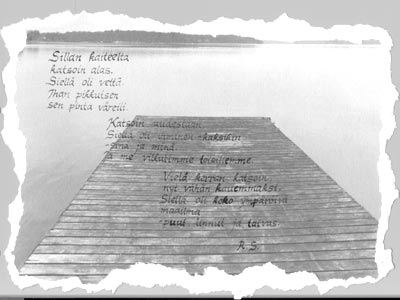 Sillan kaiteelta
katsoin alas.
Siellä oli vettä.
Ihan pikkuisen
sen pinta väreili.
Katsoin uudestaan.
Siellä oli ihminen -kaksikin
-sinä ja minä
ja me vilkutimme toisillemme.
Vielä kerran katsoin
nyt vähän kauemmaksi.
Siellä oli koko ympäröivä
maailma
-puut linnut ja taivas.
R.S